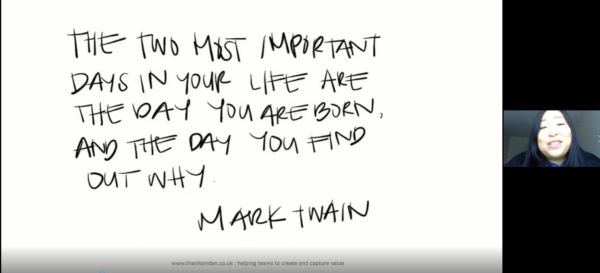 THE TWO MOST IMPORTANT
DAYS IN YOUR LIFE ARE
THE DAY YOU ARE BORN,
AND THE DAY YOU FIND
OUT WHY.
MARK TWAIN
www.thanhsinden.co.uk : helping teams to create and capture value